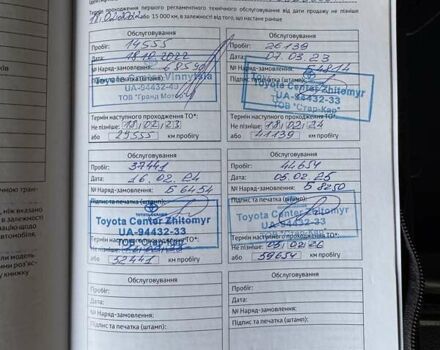 Термін проходження першого регламентного технічного обслуговування від дати продажу не пізніше
18.02.2022 або 15 000 км, в залежності від того, що настане раніше
Обслуговування
Пробіг: 14555
Дата: 18.10.2022
№ Наряд-замовлення:
Підпис та печатка (штамп):
UA-94432-40
Термін наступного проходження ТО*:
Не пізніше: 18.02.23
або 29555 км пробігу
Обслуговування
Пробіг: 26139
Дата: 07.03.23
№ Наряд-замовлення:
Підпис
Toyota Center Zhitomyr
UA-94432-33
ТОВ "Стар-Кар"
Термін наступного проходження ТО*:
Не пізніше: 18.02.24
або 41139 км пробігу
Обслуговування
Пробіг: 37441
Дата: 16.02.24
№ Наряд-замовлення: 56454
Підпис та печатка (штамп):
Toyota Center Zhitomyr
UA-94432-33
ТОВ "Стар-Кар"
Не пізніше:
або 52441 км пробігу
Обслуговування
Пробіг: 44654
Дата: 05.02.25
№ Наряд-замовлення: 58250
Підпис та печатка (штамп):
Toyota Center Zhitomyr
UA-94432-33
ТОВ "Стар-Кар"
Термін наступного проходження ТО*:
Не пізніше: 05.02.26
або 59654 км пробігу
Обслуговування
Пробіг:
Дата:
№ Наряд-замовлення:
Підпис та печатка (штамп):
Обслуговування
Пробіг:
Дата:
№ Наряд-замовлення:
Підпис та печатка (штамп):